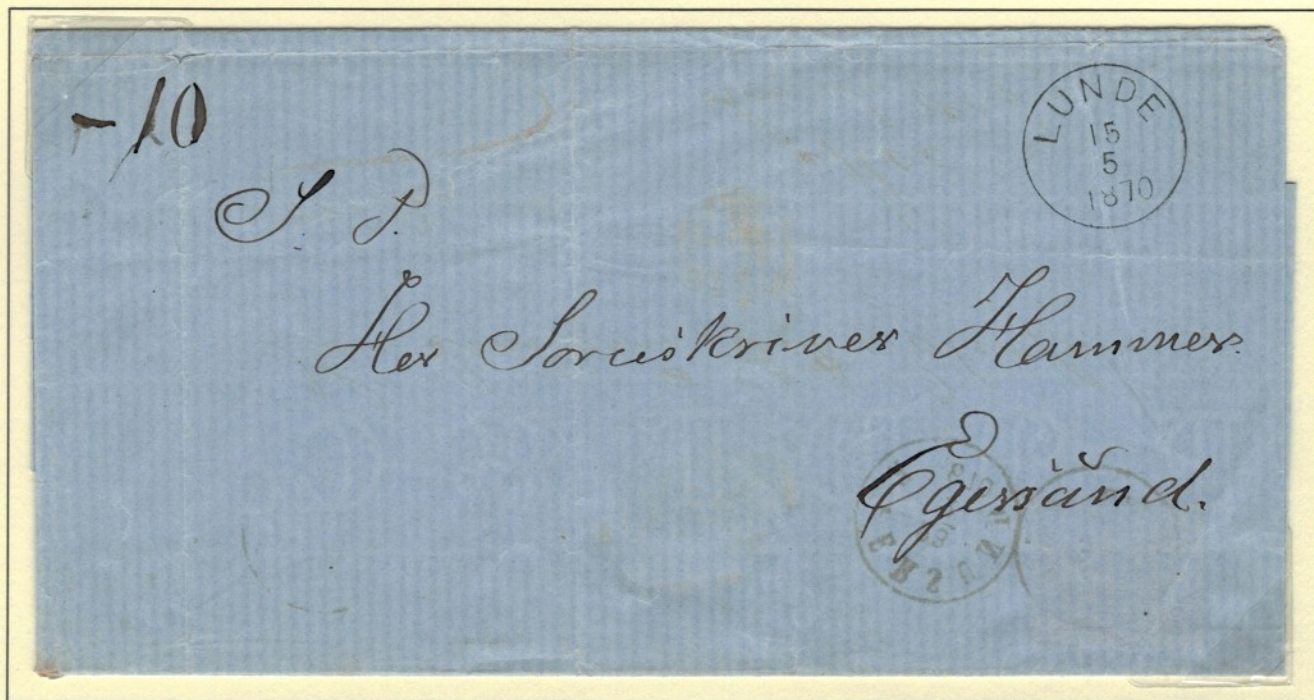 -10
LUNDE
15
5
1870
S. P.
Her Sorenskriver Hammer.
Egersund.